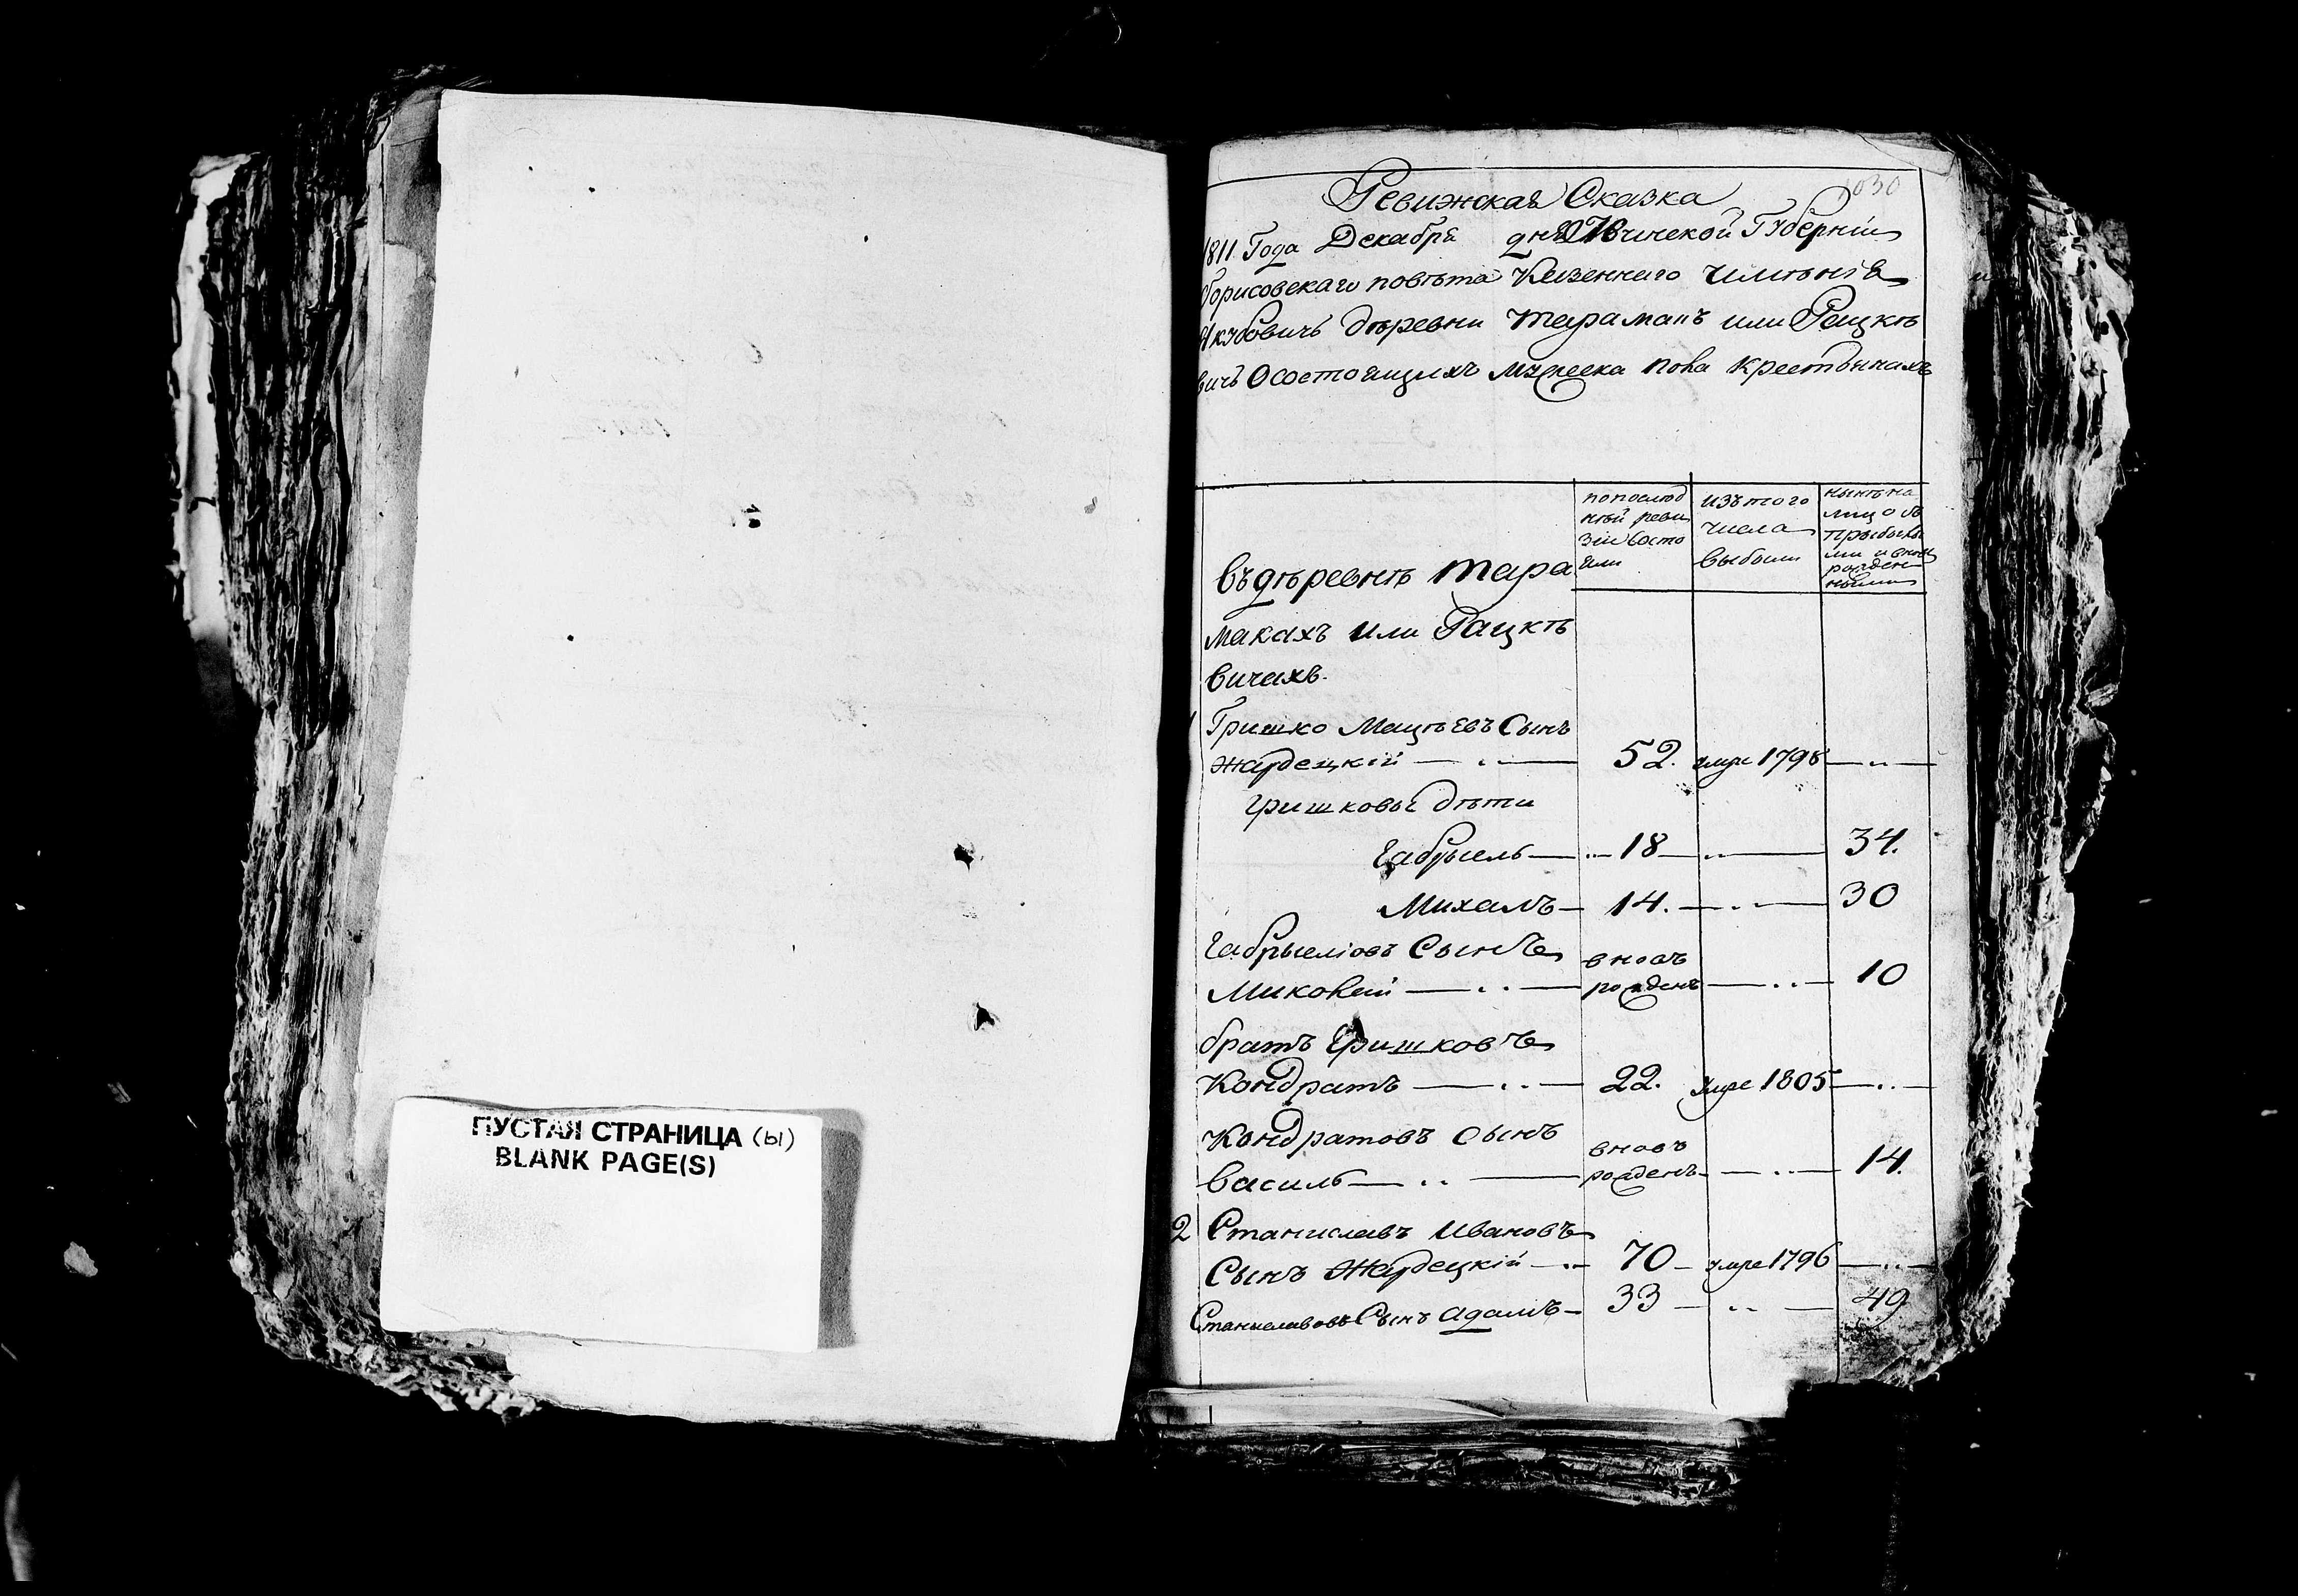 ПУСТАЯ СТРАНИЦА (Ы)
BLANK PAGE(S)
1030
Ревижская Сказка
1811 Года Декабря дня Минской Губерніи
борисовскаго повѣта Казеннаго имѣнія
Якубовичъ дѣревни Тарамакъ или Рацкѣ
вичъ О состоящихъ мужеска пола крестьянахъ
въ дѣревнѣ тара
макахъ или Рацкѣ
вичахъ.
попослѣд
нѣй реви
зіи состо
яли
изъ того
числа
выбыли
нынѣ на
лицо съ
прыбылы
ми и вновь
рожден
ными
1 Гришко Мацѣевъ Сынъ
Жардецкій — 52. умре 1798 — .. —
гришковы дѣти
Габрыель — .. — 18 — .. — 34.
Михалъ — 14. — .. — 30
Габрыеліовъ Сынъ вновь
Миколай — .. — рожденъ — .. — 10
братъ Гришковъ
Кондратъ — .. — 22. умре 1805 — .. —
Кондратовъ сынъ вновь
василь — .. — рожденъ — .. — 14.
2 Станиславъ Ивановъ
Сынъ Жардецкій — .. 70 — умре 1796 — .. —
Станиславовъ Сынъ адамъ — 33 — .. — 49